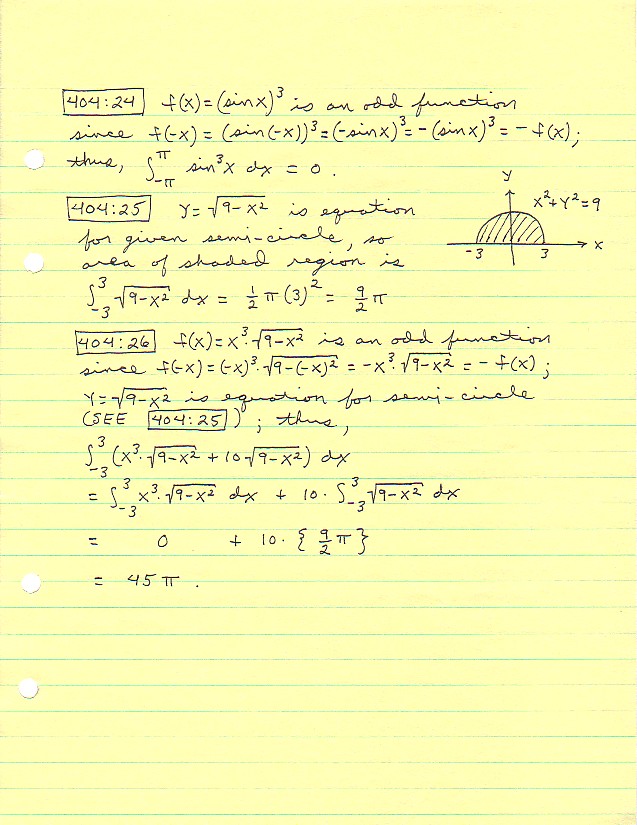 404:24 f(x) = (sin x)³ is an odd function
since f(-x) = (sin(-x))³ = (-sin x)³ = -(sin x)³ = - f(x);
thus, ∫_{-π}^{π} sin³x dx = 0.
404:25 y = √(9-x²) is equation
for given semi-circle, so
area of shaded region is
∫_{-3}^{3} √(9-x²) dx = ½ π (3)² = 9/2 π
y
x²+y²=9
-3 3 x
404:26 f(x) = x³·√(9-x²) is an odd function
since f(-x) = (-x)³·√(9-(-x)²) = -x³·√(9-x²) = - f(x);
y = √(9-x²) is equation for semi-circle
(SEE 404:25); thus,
∫_{-3}^{3} (x³·√(9-x²) + 10·√(9-x²)) dx
= ∫_{-3}^{3} x³·√(9-x²) dx + 10·∫_{-3}^{3} √(9-x²) dx
= 0 + 10·{9/2 π}
= 45π.